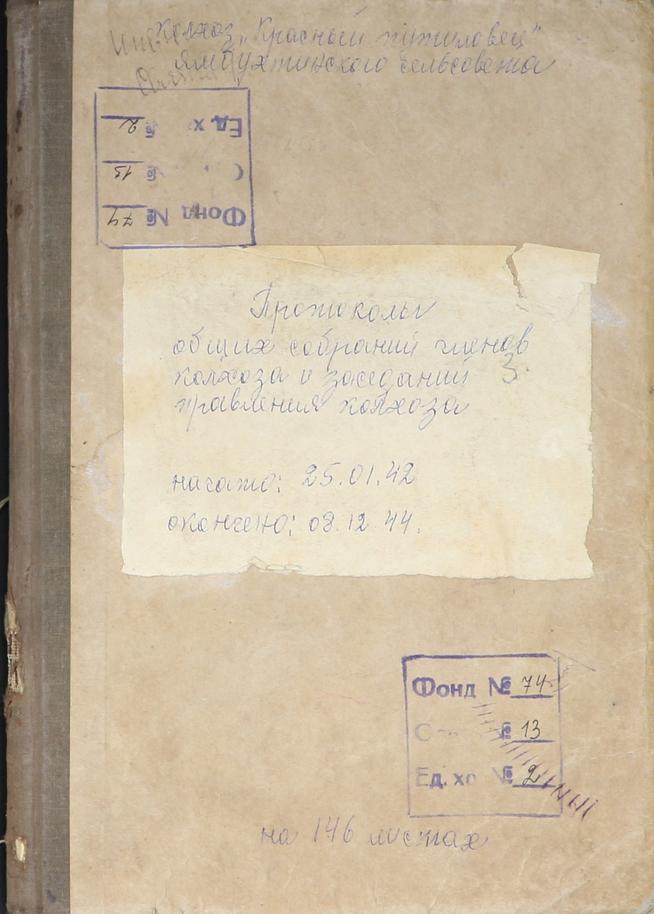 Колхоз „Красный путиловец"
Ямбухтинского сельсовета
Ед. х № 2
№ 13
Фонд № 74
Протоколы
общих собраний членов
колхоза и заседаний 3.
правления колхоза
начато: 25.01.42
окончено: 08.12 44.
Фонд № 74
№ 13
Ед. хр № 2
на 146 листах